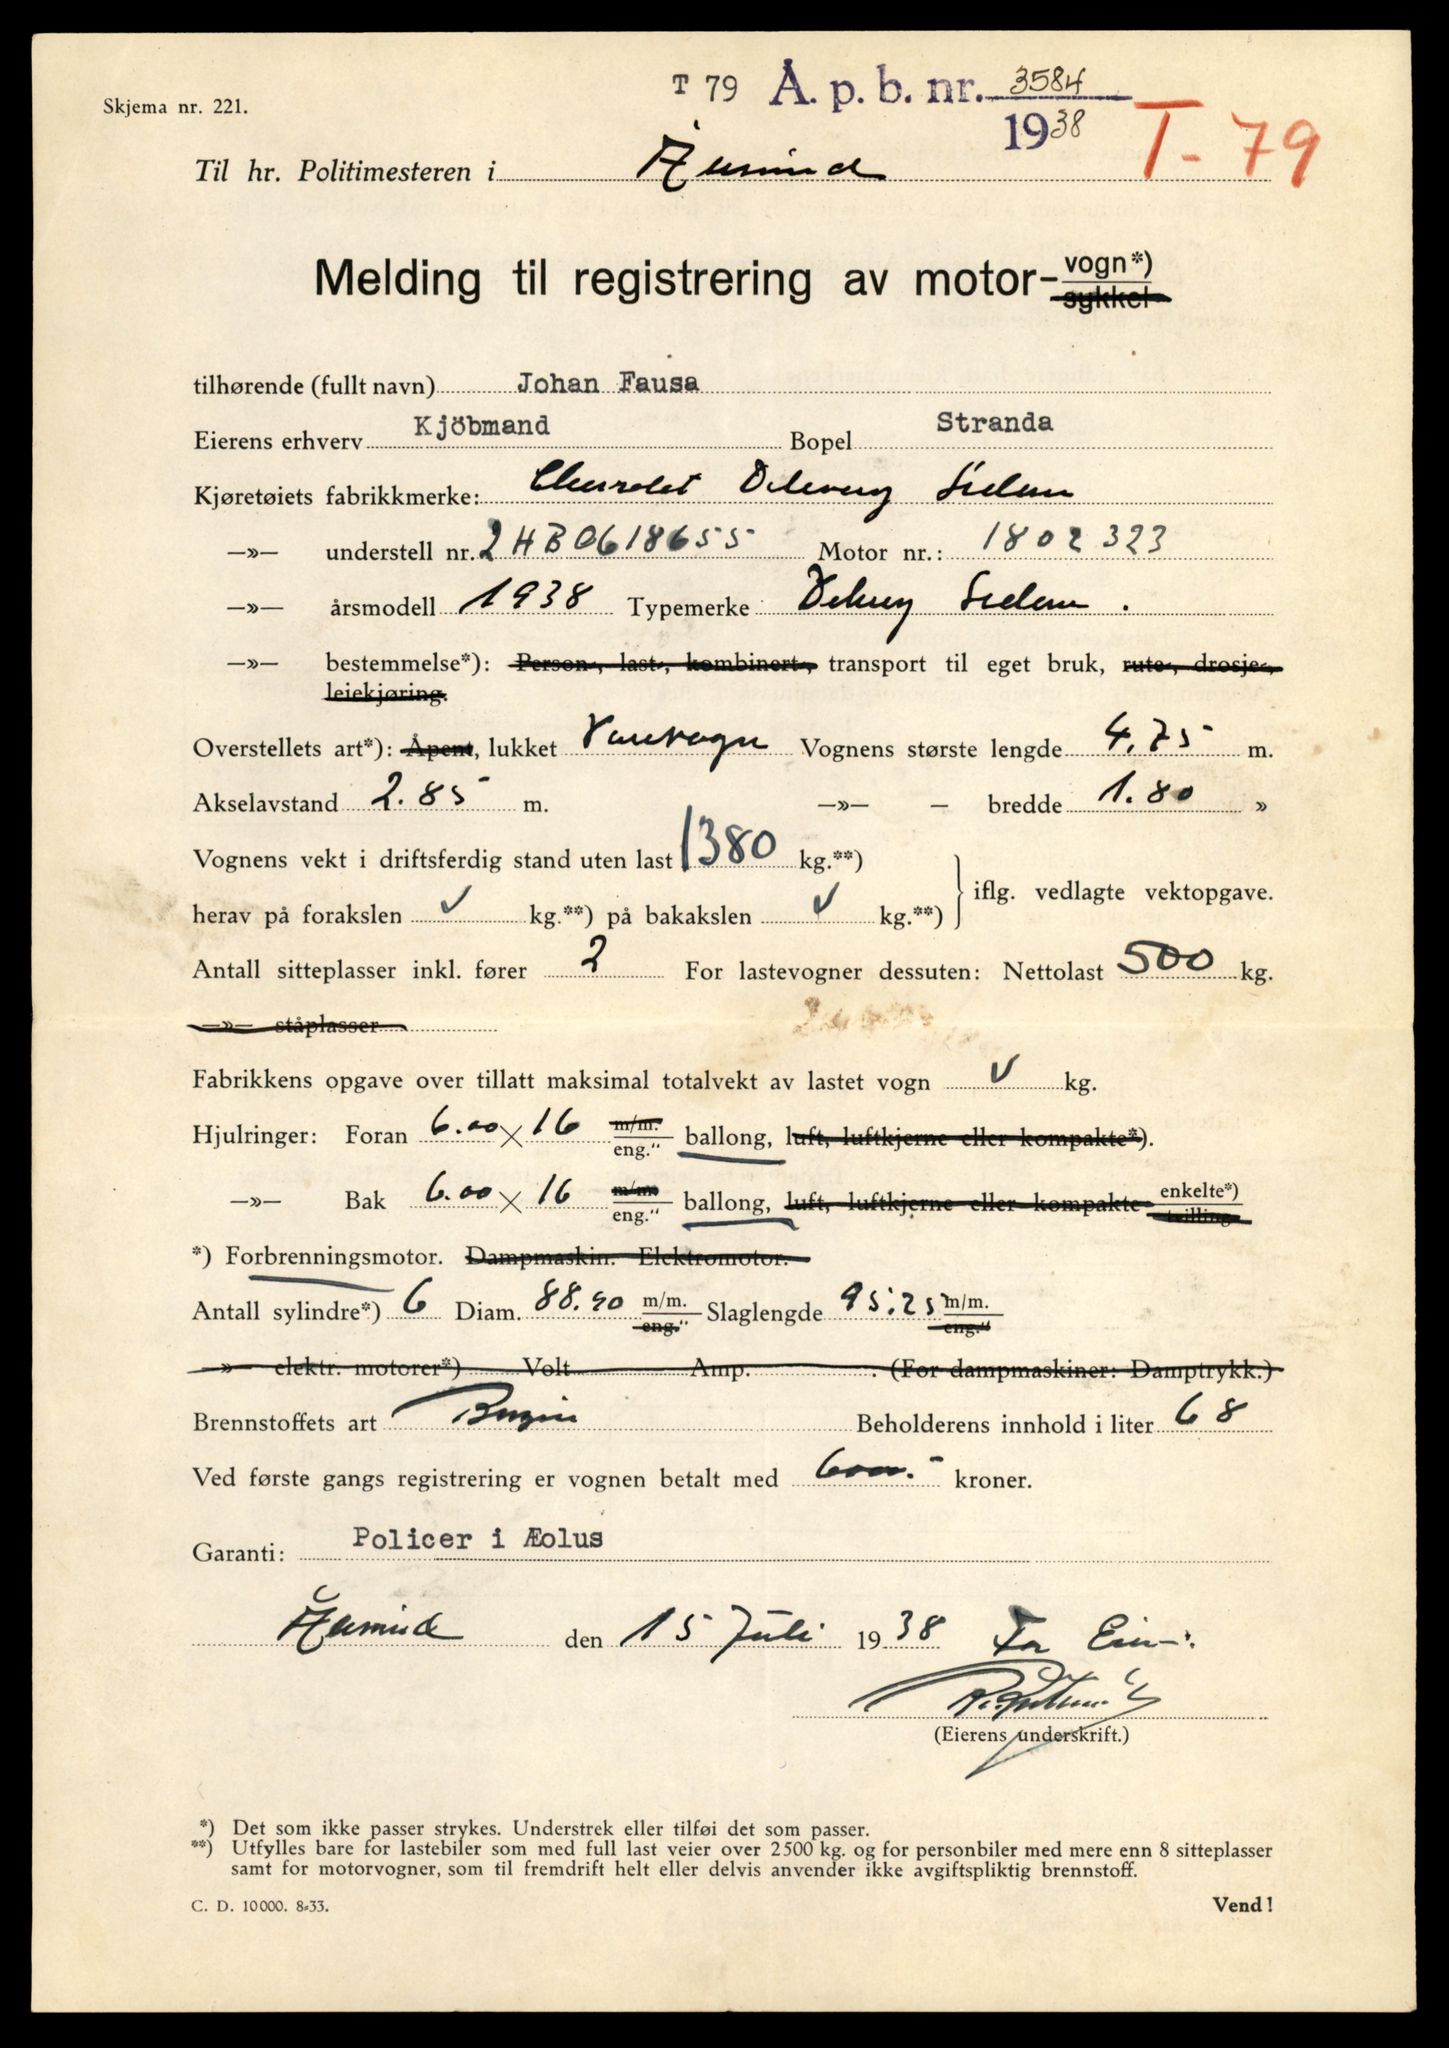 Skjema nr. 221.
T 79 Å. p. b. nr. 3584
1938
T - 79
Til hr. Politimesteren i Ålesund
Melding til registrering av motor- vogn*)
sykkel
tilhørende (fullt navn) Johan Fausa
Eierens erhverv Kjöbmand Bopel Stranda
Kjøretøiets fabrikkmerke: Chevrolet Delivery Sedan
—»— understell nr. 2HB0618655 Motor nr.: 1802323
—»— årsmodell 1938 Typemerke Delivery Sedan.
—»— bestemmelse*): Person-, last-, kombinert-, transport til eget bruk, rute-, drosje-,
leiekjøring.
Overstellets art*): Åpent, lukket Varevogn Vognens største lengde 4.75 m.
Akselavstand 2.85 m. —»— — bredde 1.80 »
Vognens vekt i driftsferdig stand uten last 1380 kg.**)
herav på forakslen ✓ kg.**) på bakakslen ✓ kg.**) } iflg. vedlagte vektopgave.
Antall sitteplasser inkl. fører 2 For lastevogner dessuten: Nettolast 500 kg.
—»— ståplasser
Fabrikkens opgave over tillatt maksimal totalvekt av lastet vogn ✓ kg.
Hjulringer: Foran 6.00 × 16 m/m. eng." ballong, luft, luftkjerne eller kompakte*).
—»— Bak 6.00 × 16 m/m eng." ballong, luft, luftkjerne eller kompakte enkelte*) tvilling
*) Forbrenningsmotor. Dampmaskin. Elektromotor.
Antall sylindre*) 6 Diam. 88.90 m/m. eng." Slaglengde 95.25 m/m. eng."
—»— elektr. motorer*) Volt Amp. . (For dampmaskiner: Damptrykk.)
Brennstoffets art Benzin Beholderens innhold i liter 68
Ved første gangs registrering er vognen betalt med 6000.- kroner.
Garanti: Policer i Æolus
Ålesund den 15 Juli 1938 For Eier:
(Eierens underskrift.)
*) Det som ikke passer strykes. Understrek eller tilføi det som passer.
**) Utfylles bare for lastebiler som med full last veier over 2500 kg. og for personbiler med mere enn 8 sitteplasser
samt for motorvogner, som til fremdrift helt eller delvis anvender ikke avgiftspliktig brennstoff.
C. D. 10000. 8-33. Vend!